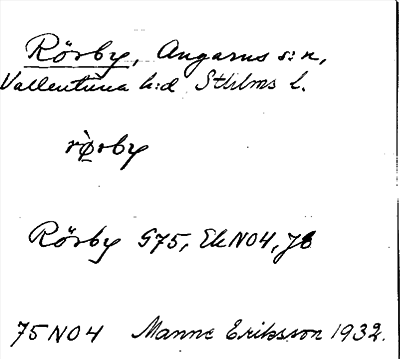 Rörby, Angarns s:n,
Vallentuna h:d Sthlms l.
rø̀rby
Rörby G75, EkNO4, Jb
75NO4 Manne Eriksson 1932.